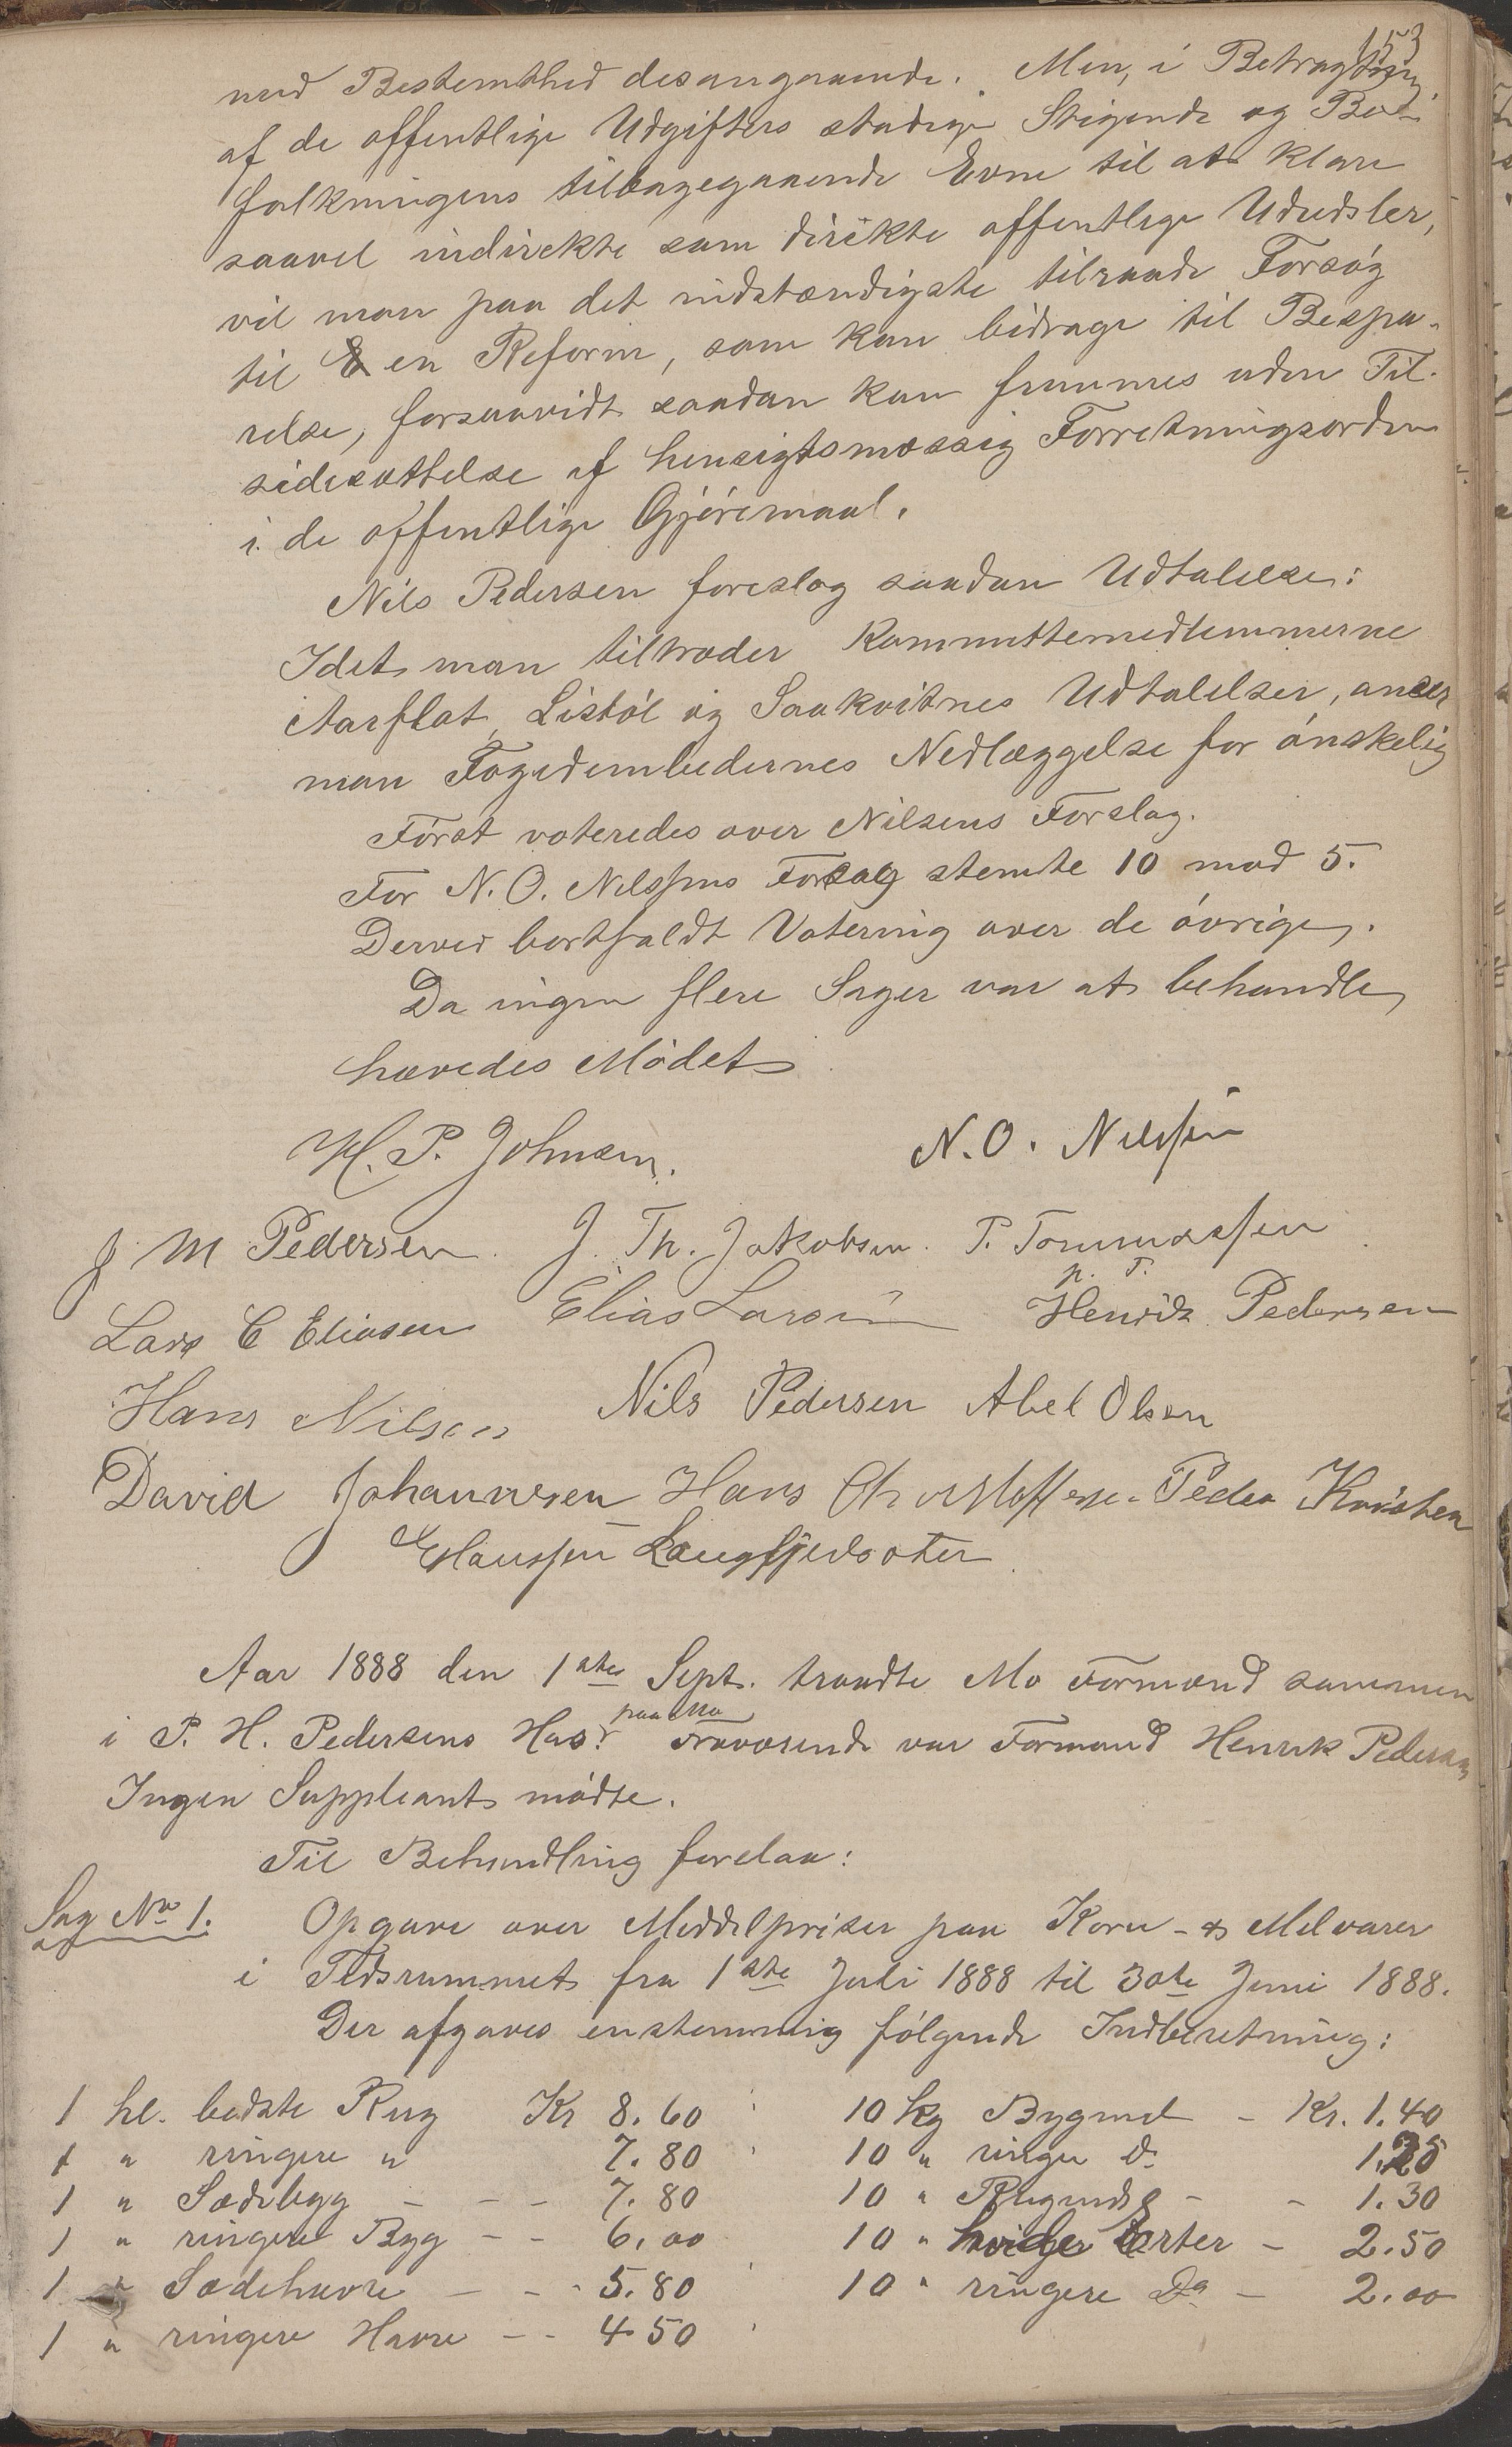 153
med Bestemthed desangaaende. Men, i Betragtning
af de offentlige Udgifters stadige Stigende og Be-
folkningens tilbagegaaende Evne til at klare
saavel indirekte som direkte offentlige Udredsler,
vil man paa det indstændigste tilraade Forsøg
til en Reform, som kan bidrage til Bespa-
relse, forsaavidt saadan kan fremmes uden Til-
sidesættelse af hensigtsmæssig Forretningsorden
i de offentlige Gjøremaal.
Nils Pedersen foreslog saadan Udtalelse:
Idet man tiltræder Kommittemedlemmerne
Aarflot, Liestøl og Saakvitnes Udtalelser, anser
man Fogedembedernes Nedlæggelse for ønskelig
Først voteredes over Nilsens Forslag.
For N. O. Nilssens Forslag stemte 10 mod 5.
Derved bortfaldt Votering over de øvrige.
Da ingen flere Sager var at behandle,
hævedes Mødet
H. P. Johnsen. N. O. Nilssen
J M Pedersen. J. Th. Jakobsen. P. Tommassen
p. T.
Lars C Eliasen Elias Larsen Henrik Pedersen
Hans Nilsen Nils Pedersen Abel Olsen
David Johannesen Hans Christoffersen Peder Kristen
E Hanssen Langfjeldsæter
Aar 1888 den 1ste Sept. traadte Mo Formænd sammen
paa Mo
i P. H. Pedersens Hus. Fraværende var Formand Henrik Pedersen
Ingen Suppleant mødte.
Til Behandling forelaa:
Sag No 1. Opgave over Middelpriser paa Korn- & Melvarer
i Tidsrummet fra 1ste Juli 1888 til 30te Juni 1888.
Der afgaves enstemmig følgende Indberetning:
1 hl. bedste Rug Kr 8.60 10 kg Bygmel - Kr. 1.40
1 " ringere " 7.80 10 " ringere Do 1.25
1 " Sædebyg - - - 7.80 10 " Rugmel - - 1.30
1 " ringere Byg - - 6.00 10 " hvide Erter - 2.50
1 " Sædehavre - - - 5.80 10 " ringere Do - 2.00
1 " ringere Havre - - 4.50